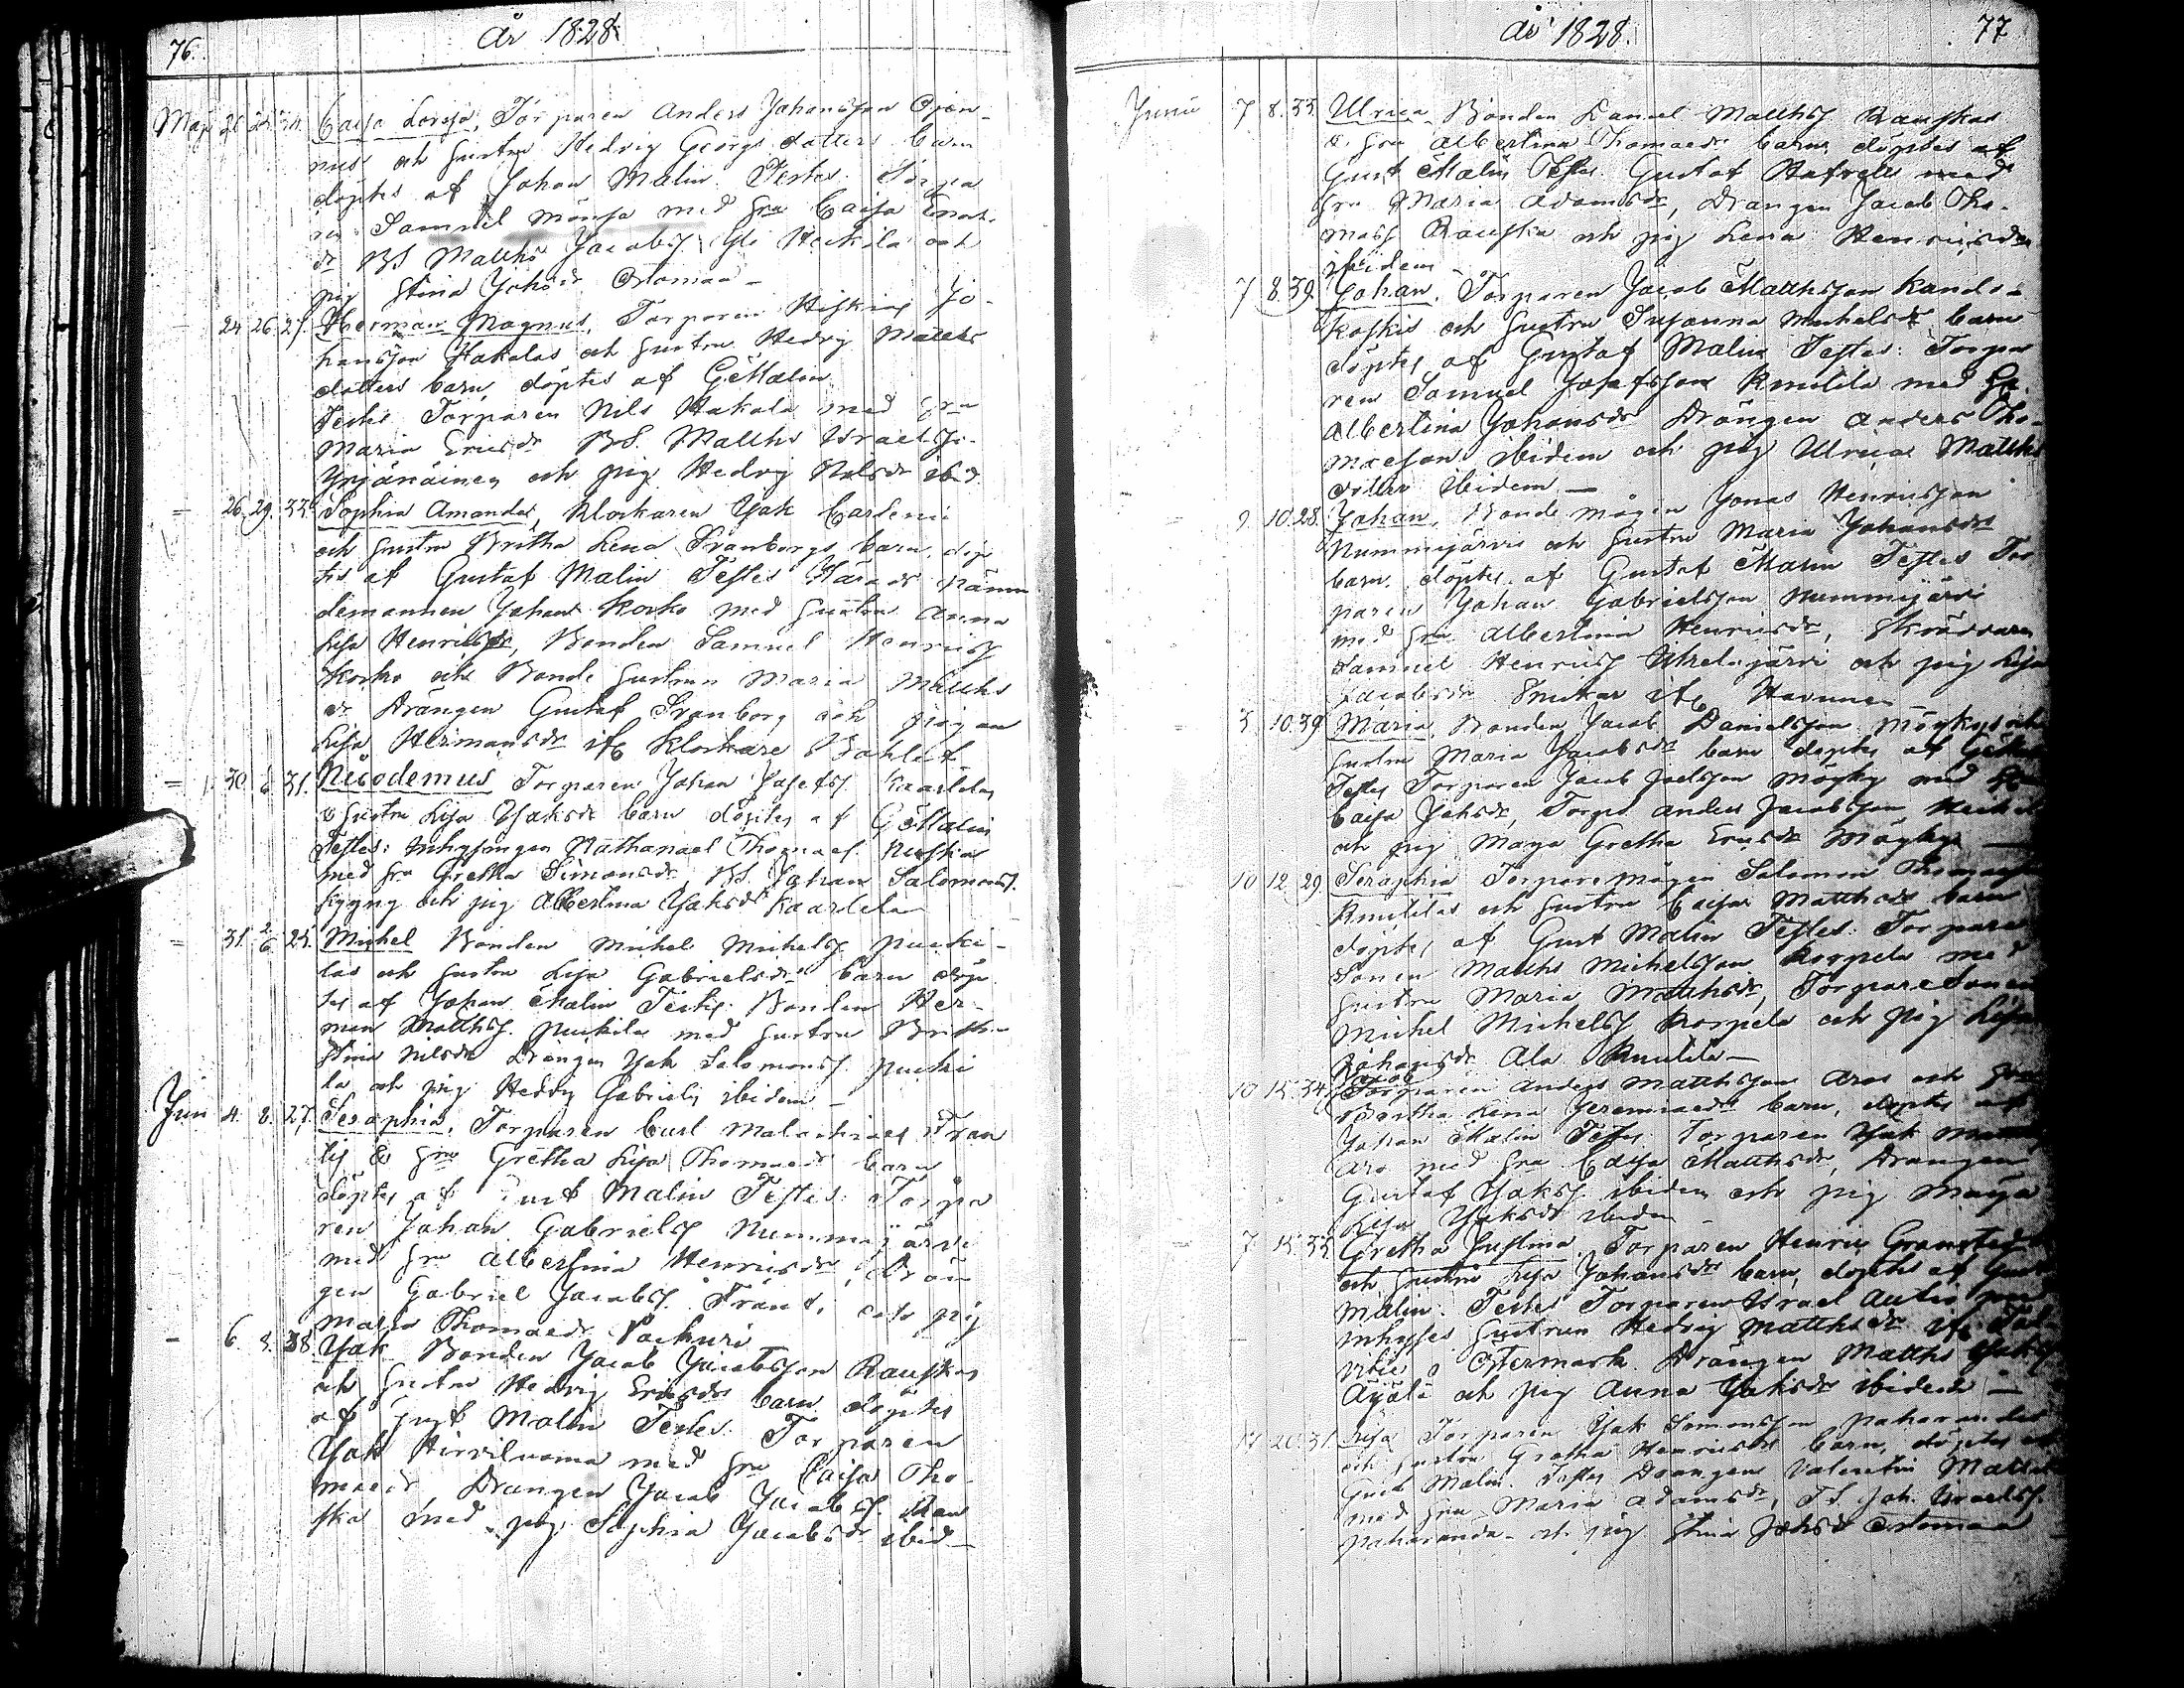 76.
År 1828.
Maji 21 25 34. Caisa Lovisa, Torparen Anders Johansson Ojan-
nus och hustru Hedvig Georgs dotters barn
döptes af Johan Malin. Testes: Torpa
ren Samuel Mänsa med hru Caisa Enat.
dr BS Matths Jacobss Yli Heikila och
pig Stina Johsdr Östoman –
24 26 27. Herman Magnus, Torparen Hiskias Jo-
hansson Hakalas och hustru Hedvig Matths
dotters barn, döptes af G Malin
Testes Torparen Nils Hakala med hru
Maria Ericsdr BS. Matths Israels
och pig Hedvig Nilsdr ibid
26. 29. 33. Sophia Amanda, Klockaren Isak Carleni
och hustru Britha Lena Svanborgs barn, döp
tes af Gustaf Malin Testes Härads Nämn
demannen Johan Korko med hustru Anna
Lisa Henriksdr, Bonden Samuel Henricss
Korko och Bonde hustrun Maria Matths
dr Drängen Gustaf Svanborg och pigan
Lisa Hermansdr ifr Klockare Bohlet
30 31. Nicodemus Torparen Johan Josefss Kaarlelas
& hustru Lisa Isaksdr barn döptes af G Malin
Testes: Inhysingen Nathanael Thomass Ruskia
med hru Gretha Simonsdr BS. Johan Salomonss.
och pig Albertina Isaksdr Kaarlela
31 2/6 25. Michel Bonden Michel Michelss Puski-
las och hustru Lisa Gabrielsdrs barn döp
tes af Johan Malin Testes Bonden Her-
man Matthss. Puskila med hustru Brith
Stina Nilsdr Drängen Isak Salomonss. Puski
la och pig Hedvig Gabriels ibidem –
Juni 4. 8. 27. Seraphia, Torparen Carl Malachias Fran
tis & hru Gretha Lisa Thomaedr barn
döptes af Gust Malin Testes: Torpa
ren Johan Gabrielss Nummijärvi
med hru Albertina Henricsdr, Drän
gen Gabriel Jacobss. Franti och pig
Maria Thomaedr Pachuri
6. 8. 38. Isak Bonden Jacob Jacobsson Rauskas
och hustru Hedvig Ericsdrs barn döptes
af Gust Malin Testes: Torparen
Isak Hirviluoma med hru Caisa Tho-
maedr Drängen Jacob Jacobss. Rau
ska med pig Sophia Jacobsdr ibid –
År 1828.
77
Junii 7 8. 33. Ulrica Bonden Daniel Matthss Rauskas
& hru Albertina Thomaedr barn, döptes af
Gust Malin Testes. Gustaf med
hru Maria Adamsdr, Drängen Jacob Tho-
mass Rauska och pig Lena Henricsdr
ibidem –
7 8. 39. Johan. Torparen Jacob Matthsson Kando-
koskis och hustru Susanna Michelsdr barn
döptes af Gustaf Malin Testes: Torpa
ren Samuel Josefsson Knuttila med hr.
Albertina Johansdr Drängen Anders Tho-
maesson ibidem och pig Ulrica Matths
dotter ibidem –
9. 10. 28. Johan, Bonde mågen Jonas Henricsson
Nummijärvi och hustru Maria Johansdrs
barn. döptes af Gustaf Malin Testes Tor
paren Johan Gabrielsson Nummijärvi
med hru Albertina Henricsdr, Skräddaren
Samuel Henricss järvi och pig Lisa
Jacobsdr ifr
5. 10. 39. Maria Bonden Jacob Danielsson och
hustru Maria Jacobsdr barn döptes af G
Testes Torparen Jacob Joelsson med hru
Caisa Johsdr, Torps Anders Jacobsson
och pig Maya Gretha Ericsdr –
10 12. 29. Seraphia Torpare mågen Salomon
Knuttilas och hustru Caisa Matthsdr barn
döptes af Gust Malin Testes: Torpare
sonen Matths Michelsson Korpela med
hustru Maria Matthsdr, Torparesonen
Michel Michelss Korpela och pig Lisa
Johansdr Ala Knuttila –
10 15. 34. Jacob Torparen Anders Matthsson Aros och hru
Britha Lena Jeremiaedr barn, döptes af
Johan Malin Testes Torparen Isak
Aro med hru Caisa Matthsdr, Drängen
Gustaf Isakss. ibidem och pig Maija
Lisa Isaksdr ibidem –
7 15. 33. Gretha Justina, Torparen Henric
och hustru Lisa Johansdrs barn, döptes af Gust
Malin. Testes Torparen Israel
inhyses hustrun Hedvig Matthsdr ifr
i Östermark. Drängen Matths
Äijälä och pig Anna Isaksdr ibidem –
17 20. 31. Lisa Torparen Isak Simonsson
och hustru Gretha Henricsdrs barn, döptes af
Gust Malin Testes Drängen Valentin
med hru Maria Adamsdr, TS. Joh. Israelss.
och pig Stina Johsdr Östoman